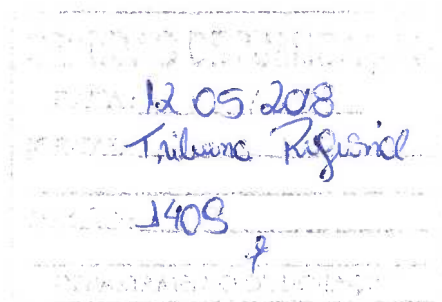 12 05 2018
Tribuna Regional
1409